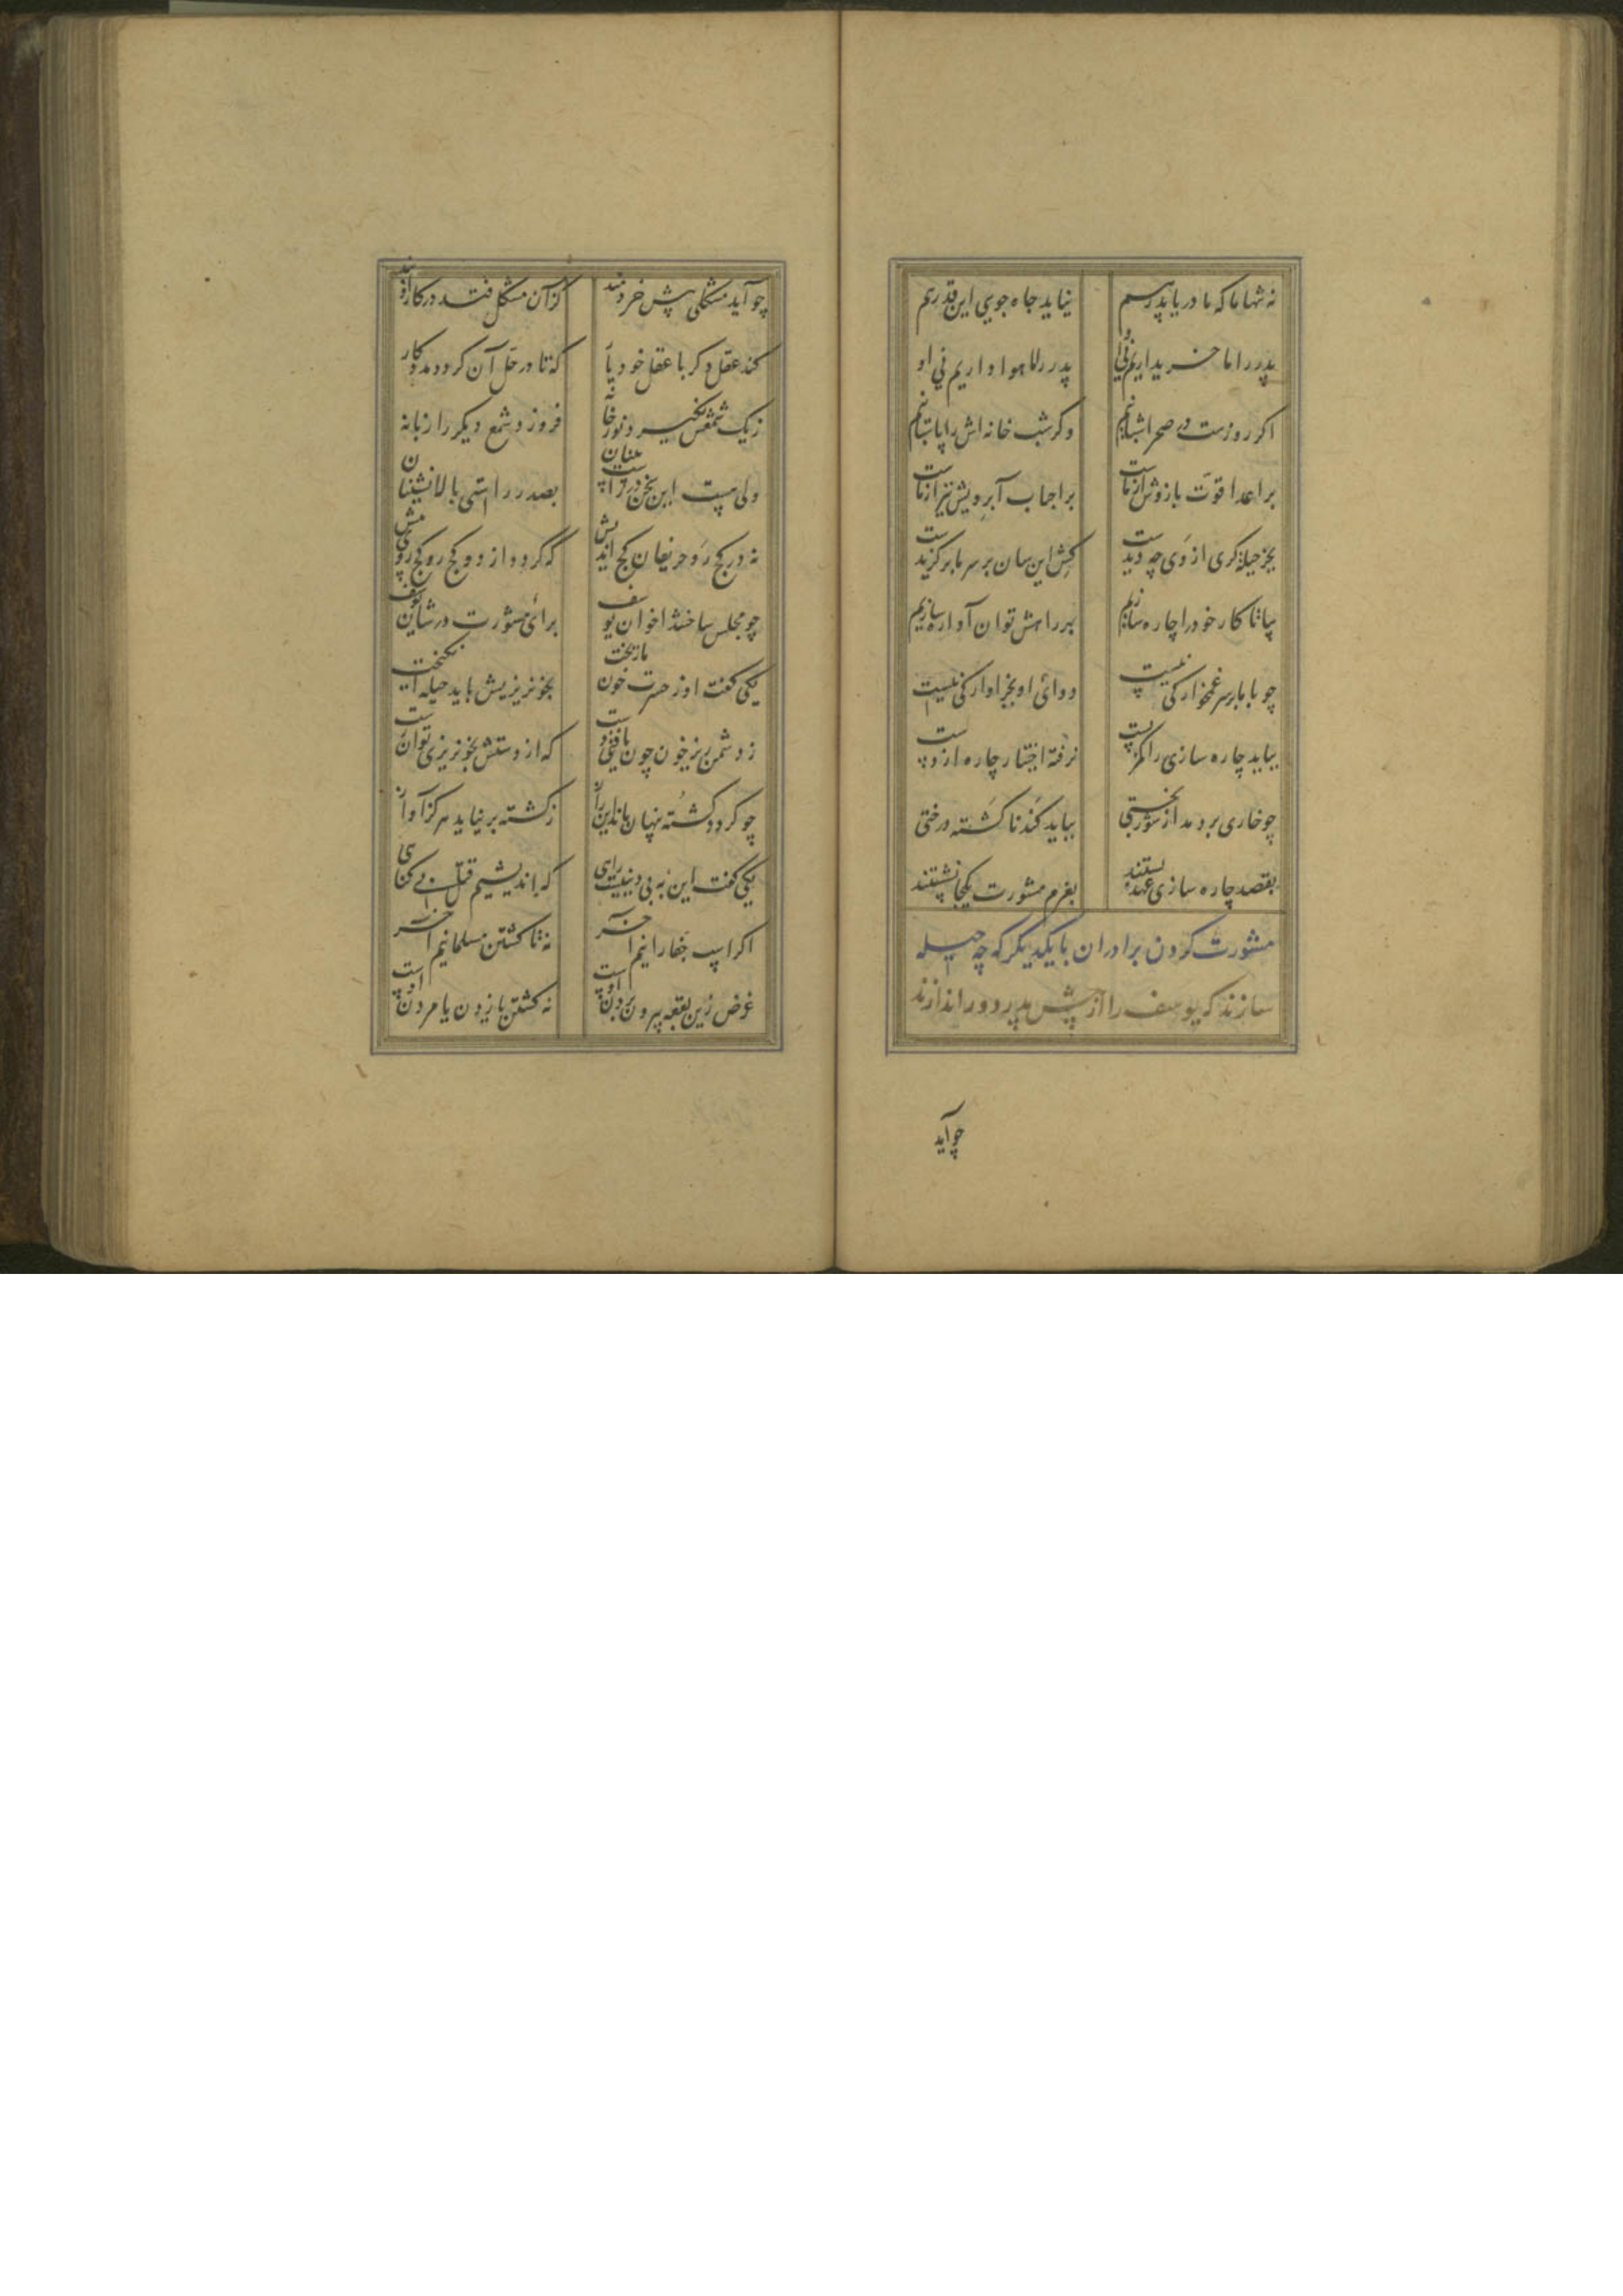 نه تنها ما که مادر یا پدر هم
نیاید جاه جویی این قدر هم
پدر را ما خریداریم نی او
پدر را ما هواداریم نی او
اکر روزست در صحرا شبانیم
وکر شب خانه اش را پاسبانیم
بر اعدا قوت بازوش از ماست
بر احباب آبرویش نیز از ماست
بجز حیله کری از وی چه دیدست
کش این سان بر سر ما بر کزیدست
بیا تا کار خود را چاره سازیم
بهر راهش توان آواره سازیم
چو با ما بر سر غمخوارکی نیست
دوای او بجز آوارکی نیست
بباید چاره سازی را کمر بست
نرفته اختیار چاره از دست
چو خاری بر دمد از شور بختی
بباید کند ناکشته درختی
بقصد چاره سازی عهد بستند
بعزم مشورت یکجا نشستند
مشورت کردن برادران با یکدیکر که چه حیله
سازند که یوسف را از پیش پدر دور اندازند
چو آید
چو آید مشکلی پیش خردمند
کز آن مشکل فتد در کار او بند
کند عقل دکر با عقل خود یار
که تا در حل آن کردد مددکار
ز یک شمعش نکیرد نور خانه
فروزد شمع دیکر را زبانه
ولی هست این سخن در راست بینان
بصدر راستی بالا نشینان
نه در کج رو حریفان کج اندیش
که کردد از دو کج رو کج روی بیش
چو مجلس ساختند اخوان یوسف
برای مشورت در شان یوسف
یکی کفت او ز حسرت خون ما ریخت
بخونریزیش باید حیله انکیخت
ز دشمن ریز خون چون یافتی دست
که از دستش بخونریزی توان رست
چو کردد کشته پنهان ماند این راز
ز کشته بر نیاید هرکز آواز
یکی کفت این به بی دینیست رای
که اندیشیم قتل بی کنای
اکر اسپ جفا رانیم آخر
نه تا کشتن مسلمانیم آخر
غرض زین بقعه بیرون بردن اوست
نه کشتن یا زدن یا مردن اوست